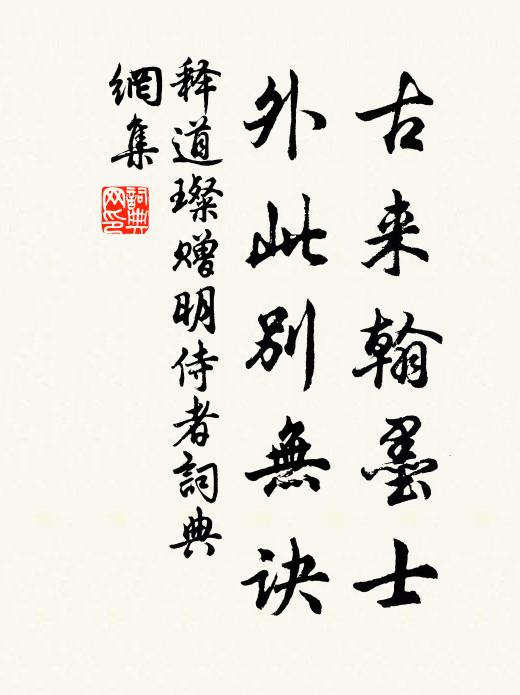 古来翰墨士
外此别無诀
释道璨赠明侍者詞典
網集
詞典
网印